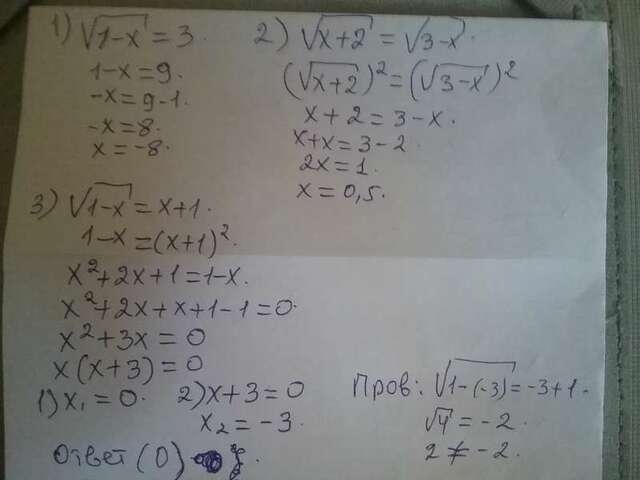 1) √1-x = 3.
1-x=9.
-x=9-1.
-x=8.
x=-8.
2) √x+2 = √3-x.
(√x+2)²=(√3-x)²
x+2=3-x.
x+x=3-2
2x=1.
x=0,5.
3) √1-x = x+1.
1-x=(x+1)².
x²+2x+1=1-x.
x²+2x+x+1-1=0.
x²+3x=0
x(x+3)=0
1) x₁=0. 2) x+3=0
x₂=-3.
Ответ (0)
Пров: √1-(-3)=-3+1.
√4=-2.
2≠-2.